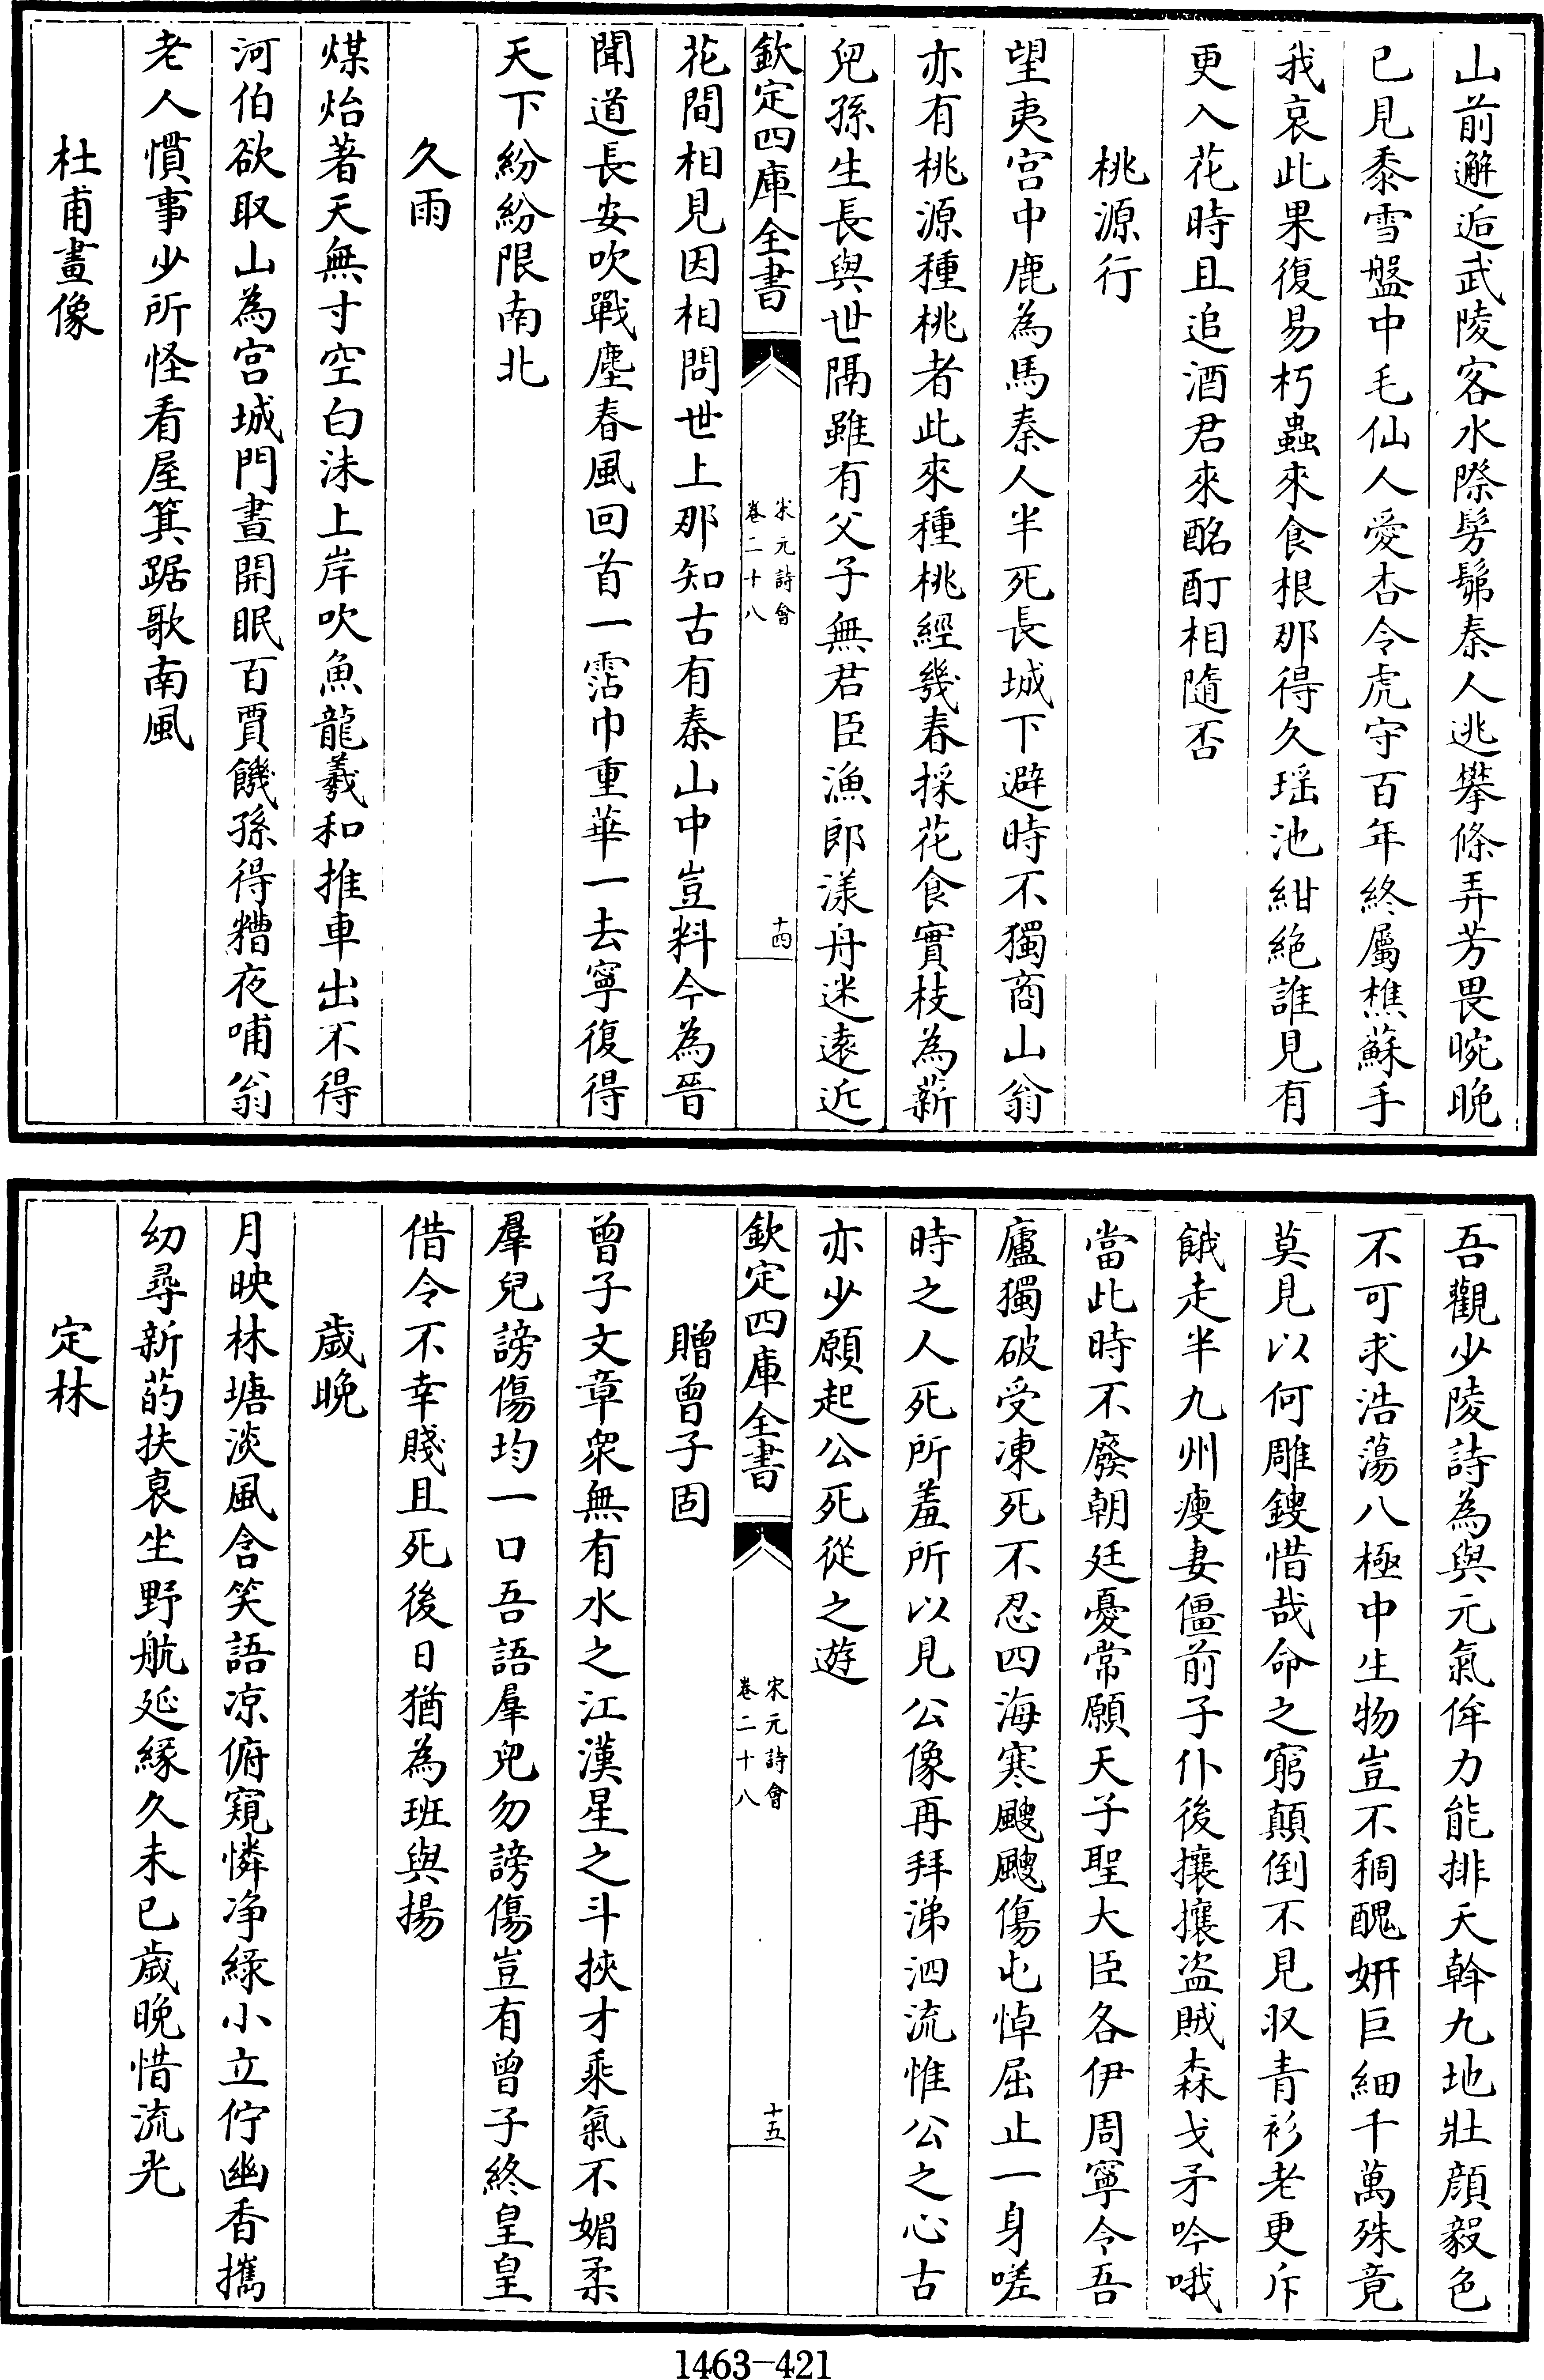 山前邂逅武陵客水際髣髴秦人逃攀條弄芳畏晼晚
已見黍雪盤中毛仙人愛杏令虎守百年終屬樵蘇手
我哀此果復易朽蟲來食根那得久瑶池紺絶誰見有
更入花時且追酒君來酩酊相隨否
桃源行
望夷宫中鹿為馬秦人半死長城下避時不獨商山翁
亦有桃源種桃者此來種桃經幾春採花食實枝為薪
兒孫生長與世隔雖有父子無君臣漁郎漾舟迷遠近
欽定四庫全書
宋元詩會
卷二十八
十四
花間相見因相問世上那知古有秦山中豈料今為晉
聞道長安吹戰塵春風回首一霑巾重華一去寧復得
天下紛紛限南北
久雨
煤炲著天無寸空白沫上岸吹魚龍羲和推車出不得
河伯欲取山為宫城門晝開眠百賈饑孫得糟夜哺翁
老人慣事少所怪看屋箕踞歌南風
杜甫畫像
吾觀少陵詩為與元氣侔力能排天斡九地壯顔毅色
不可求浩蕩八極中生物豈不稠醜妍巨細千萬殊竟
莫見以何雕鎪惜哉命之窮顛倒不見収青衫老更斥
餓走半九州瘦妻僵前子仆後攘攘盗賊森戈矛吟哦
當此時不廢朝廷憂常願天子聖大臣各伊周寧令吾
廬獨破受凍死不忍四海寒颼颼傷屯悼屈止一身嗟
時之人死所羞所以見公像再拜涕泗流惟公之心古
亦少願起公死從之遊
欽定四庫全書
宋元詩會
卷二十八
十五
贈曾子固
曾子文章衆無有水之江漢星之斗挾才乘氣不媚柔
羣兒謗傷均一口吾語羣兒勿謗傷豈有曾子終皇皇
借令不幸賤且死後日猶為班與揚
歲晚
月映林塘淡風含笑語凉俯窺憐净緑小立佇幽香攜
幼尋新菂扶衰坐野航延緣久未已歲晚惜流光
定林
1463-421